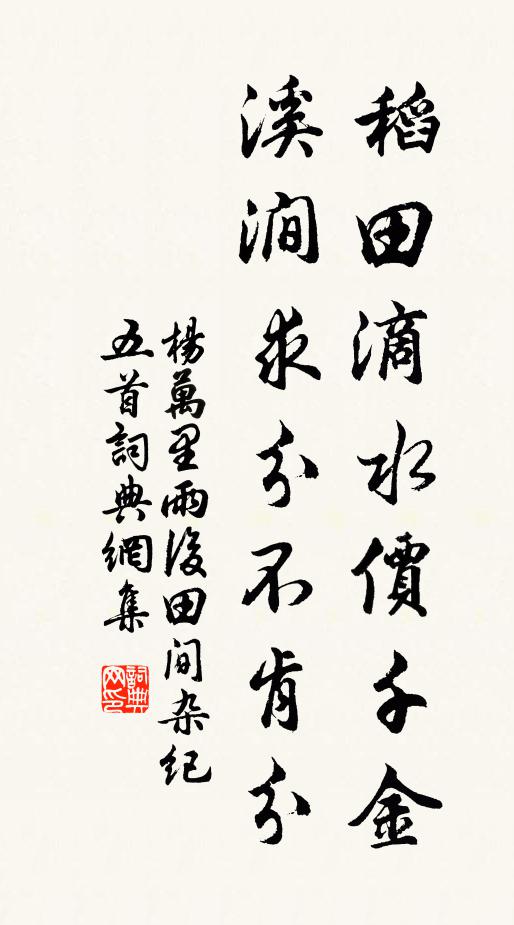 稻田滴水價千金
溪澗求分不肯分
楊萬里雨後田間杂紀
五首詞典網集
詞典网印